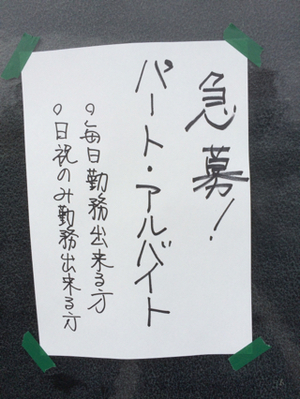 急募！
パート・アルバイト
○毎日勤務出来る方
○日祝のみ勤務出来る方